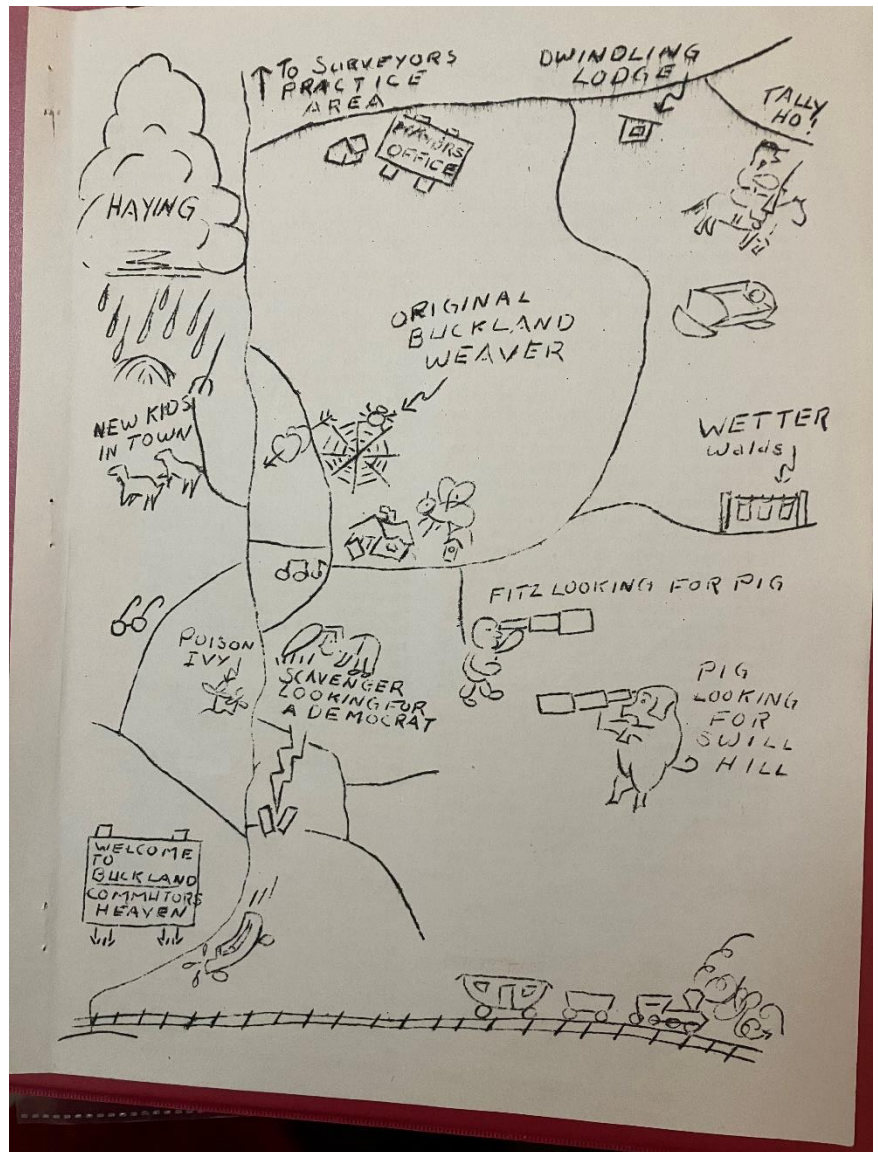 ↑ TO SURVEYORS
PRACTICE
AREA
DWINDLING
LODGE
TALLY
HO!
MAYORS
OFFICE
HAYING
ORIGINAL
BUCKLAND
WEAVER
NEW KIDS
IN TOWN
WETTER
Walds
FITZ LOOKING FOR PIG
POISON
IVY
SCAVENGER
LOOKING FOR
A DEMOCRAT
PIG
LOOKING
FOR
SWILL
HILL
WELCOME
TO
BUCKLAND
COMMUTORS
HEAVEN